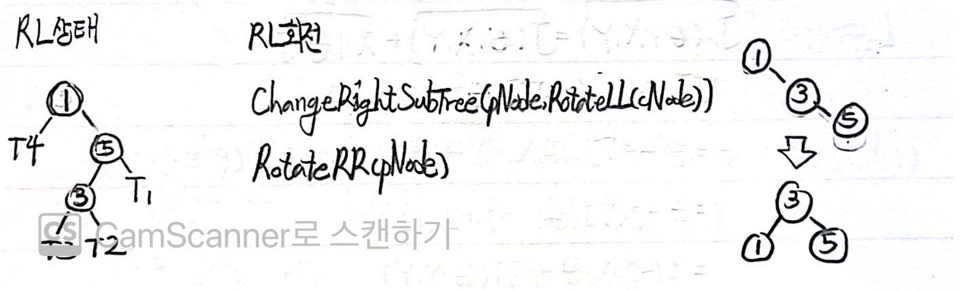 RL상태
RL회전
ChangeRightSubTree(pNode, RotateLL(cNode))
RotateRR(pNode)
1
T4
5
3
T1
T2
1
3
5
3
1
5
CS CamScanner로 스캔하기